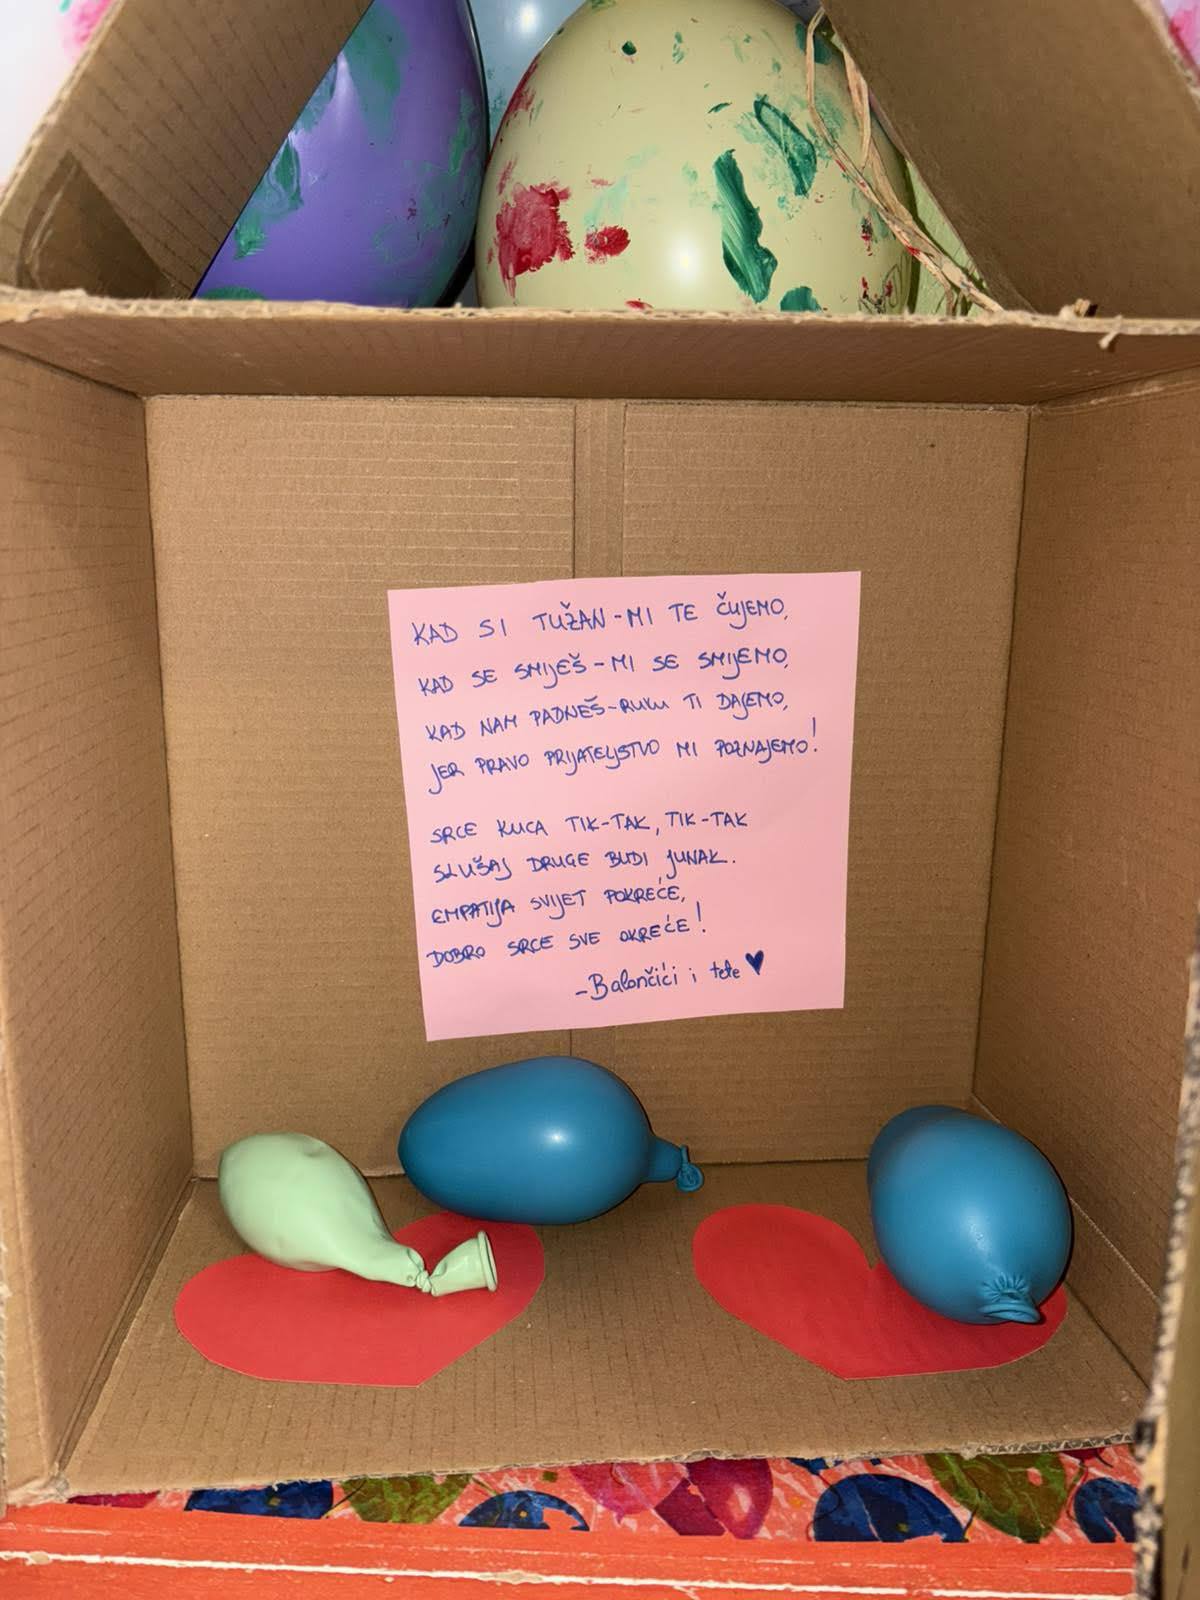 KAD SI TUŽAN-MI TE ČUJEMO,
KAD SE SMIJEŠ-MI SE SMIJEMO,
KAD NAM PADNEŠ-RUKU TI DAJEMO,
JER PRAVO PRIJATELJSTVO MI POZNAJEMO!
SRCE KUCA TIK-TAK, TIK-TAK
SLUŠAJ DRUGE BUDI JUNAK.
EMPATIJA SVIJET POKREĆE,
DOBRO SRCE SVE OKREĆE!
-Balončići i tete ♥